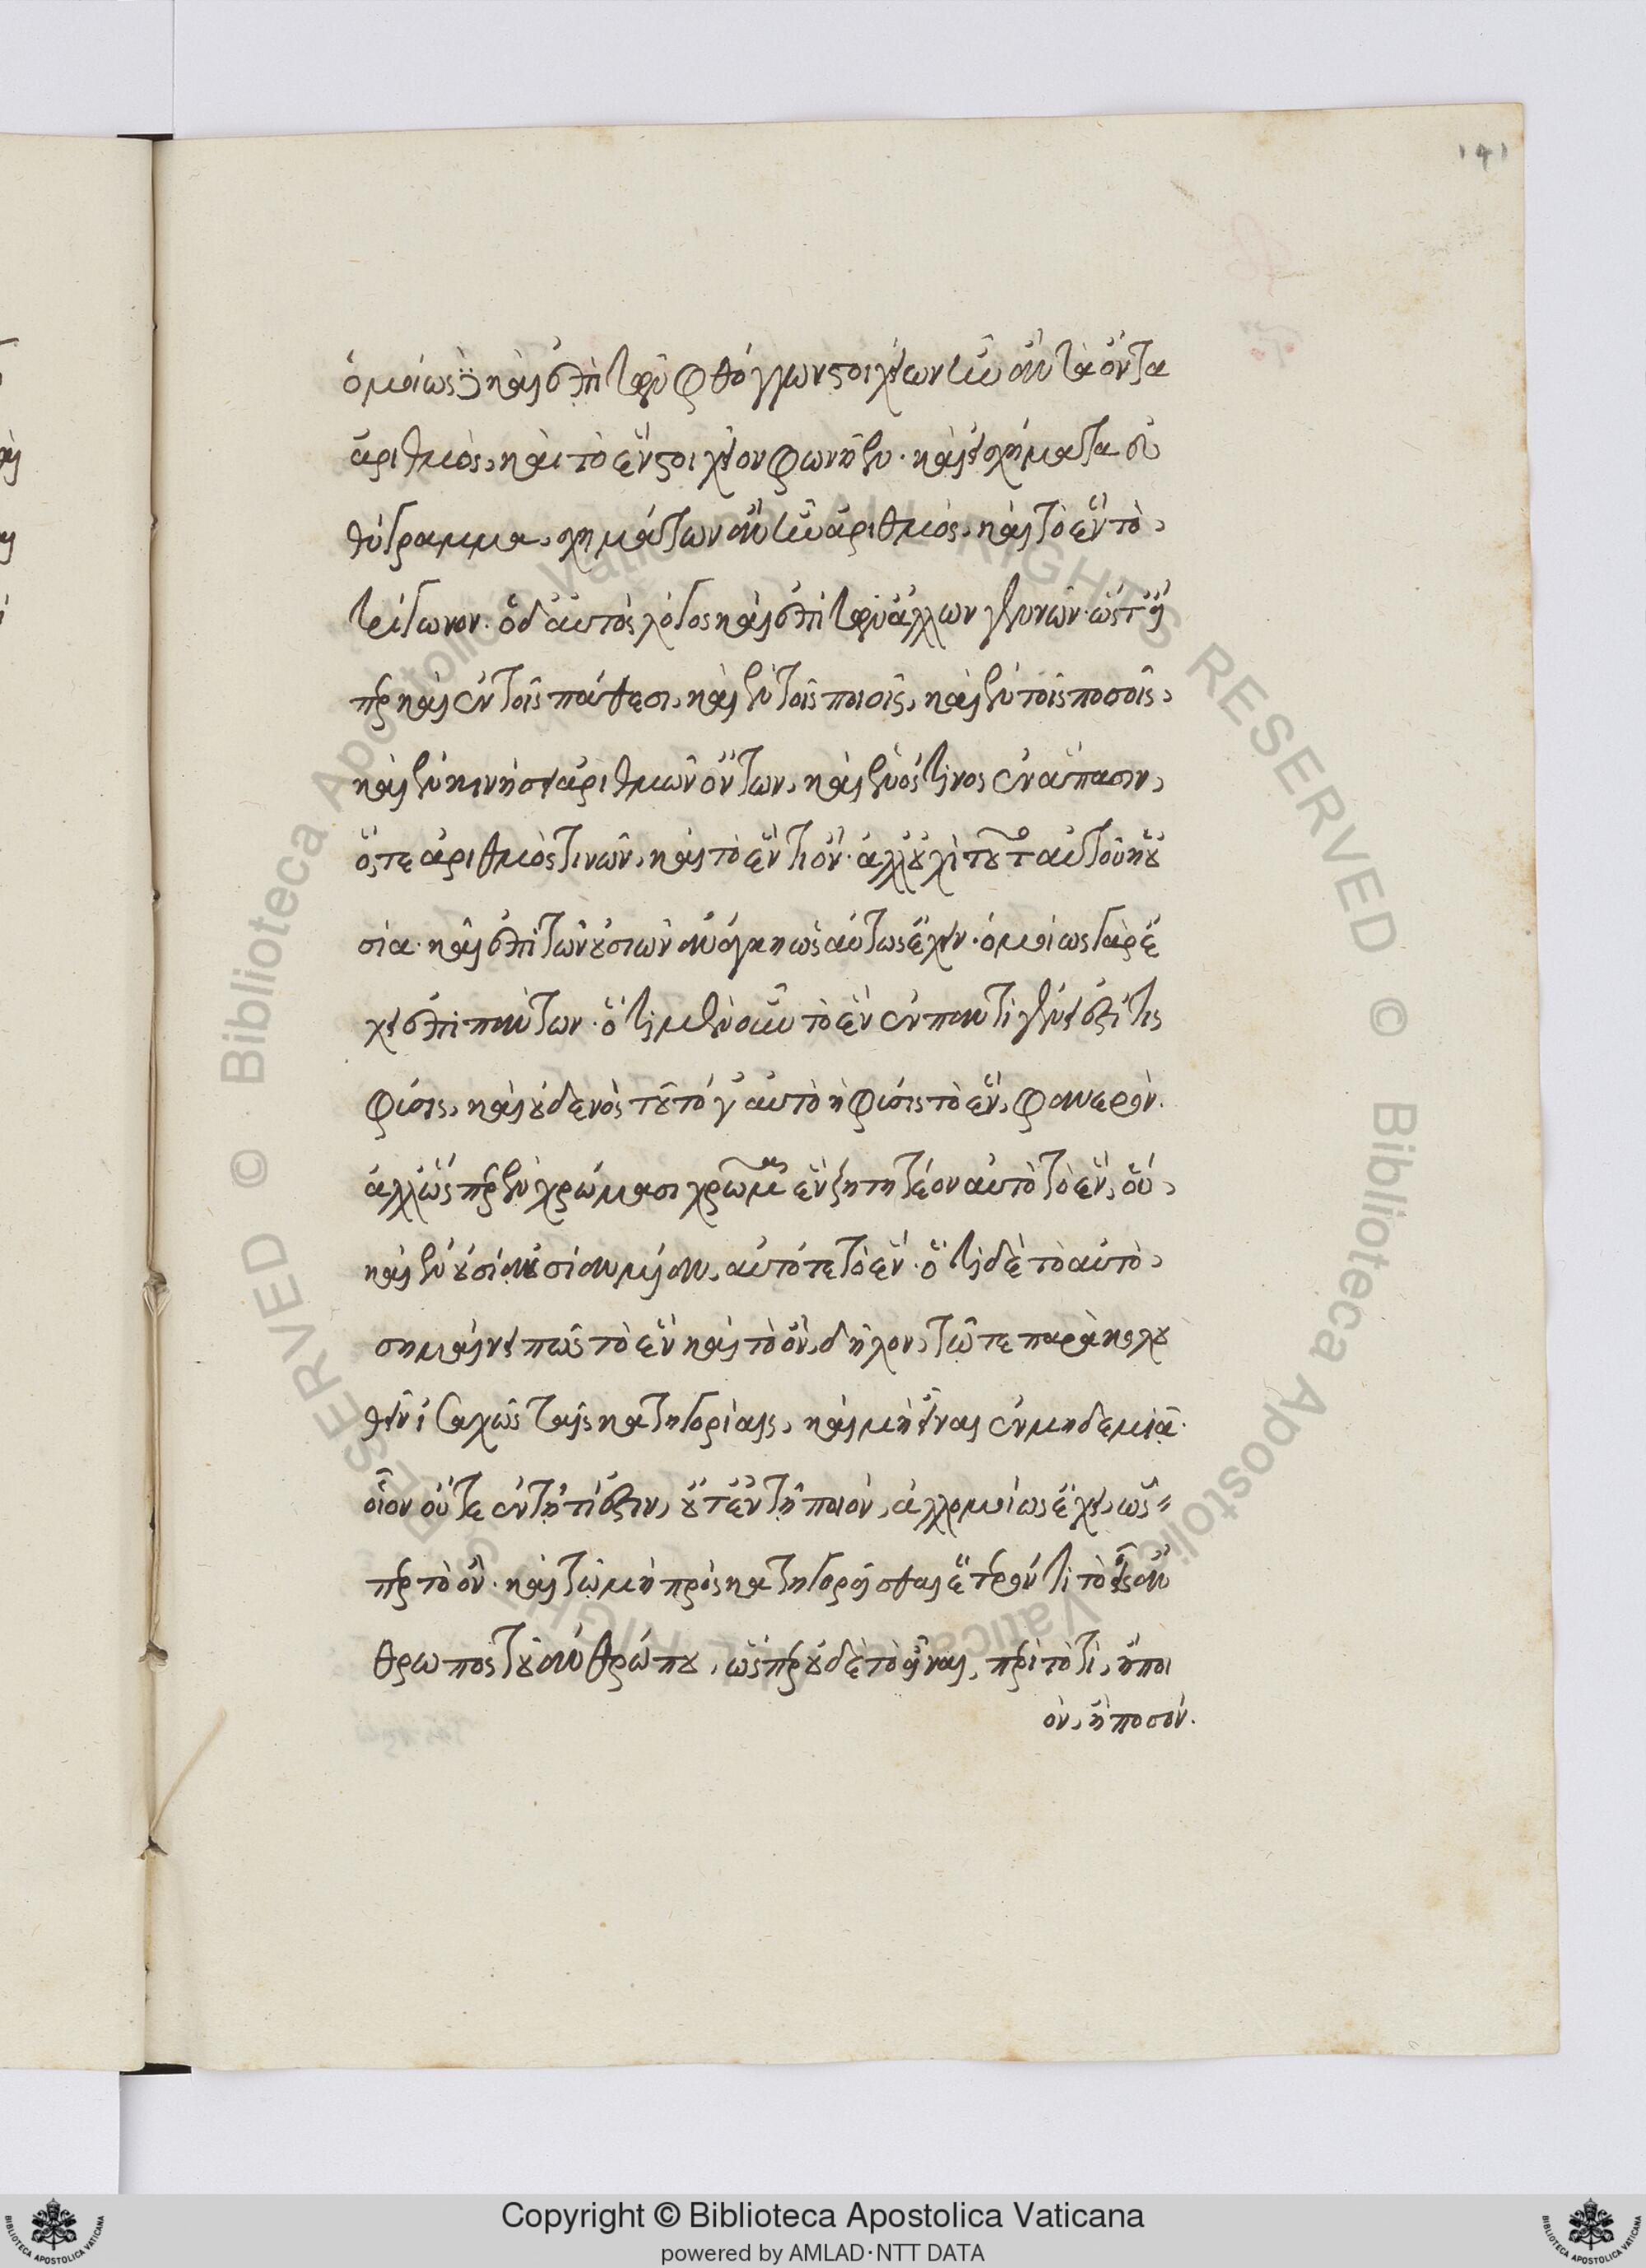 141
ὁμοίως δὲ καὶ ἐπὶ τῶν φθόγγων στοιχείων ἂν ἦν τὰ ὄντα
ἀριθμὸς, καὶ τὸ ἓν στοιχεῖον φωνῆεν. καὶ εἰ σχήματα εὐ
θύγραμμα, σχημάτων ἂν ἦν ἀριθμὸς, καὶ τὸ ἓν τὸ
τρίγωνον. ὁ δ' αὐτὸς λόγος καὶ ἐπὶ τῶν ἄλλων γενῶν. ὥστ' εἴ
περ καὶ ἐν τοῖς πάθεσι, καὶ ἐν τοῖς ποιοῖς, καὶ ἐν τοῖς ποσοῖς,
καὶ ἐν κινήσει ἀριθμῶν ὄντων, καὶ ἑνός τινος ἐν ἅπασιν,
ὅ τε ἀριθμὸς τινῶν, καὶ τὸ ἓν τὶ ὄν. ἀλλ' οὐχὶ τοῦτο αὐτοῦ ἡ οὐ
σία. καὶ ἐπὶ τῶν οὐσιῶν ἀνάγκη ὡσαύτως ἔχειν. ὁμοίως γὰρ ἔ
χει ἐπὶ πάντων. ὅτι μὲν οὖν τὸ ἓν ἐν παντὶ γένει ἐστί τις
φύσις, καὶ οὐδενὸς τοῦτό γ' αὐτὸ ἡ φύσις τὸ ἓν, φανερόν.
ἀλλ' ὥσπερ ἐν χρώμασι χρῶμα ἓν ζητητέον αὐτὸ τὸ ἓν, οὕ
καὶ ἐν οὐσίᾳ οὐσίαν μίαν, αὐτό τε τὸ ἕν. ὅτι δὲ τὸ αὐτὸ
σημαίνει πως τὸ ἓν καὶ τὸ ὂν, δῆλον, τῷ τε παρακολου
θεῖν ἰσαχῶς ταῖς κατηγορίαις, καὶ μὴ εἶναι ἐν μηδεμιᾷ.
οἷον οὔτε ἐν τῇ τί ἐστιν, οὔτ' ἐν τῇ ποιὸν, ἀλλ' ὁμοίως ἔχει, ὥσ=
περ τὸ ὄν. καὶ τῷ μὴ προσκατηγορεῖσθαι ἕτερόν τι τὸ εἷς ἄν
θρωπος τοῦ ἀνθρώπου, ὥσπερ οὐδὲ τὸ εἶναι, περὶ τὸ τὶ, ἢ ποι
ὸν, ἢ ποσόν.
© Biblioteca Apostolica Vaticana ALL RIGHTS RESERVED
Copyright © Biblioteca Apostolica Vaticana
powered by AMLAD·NTT DATA